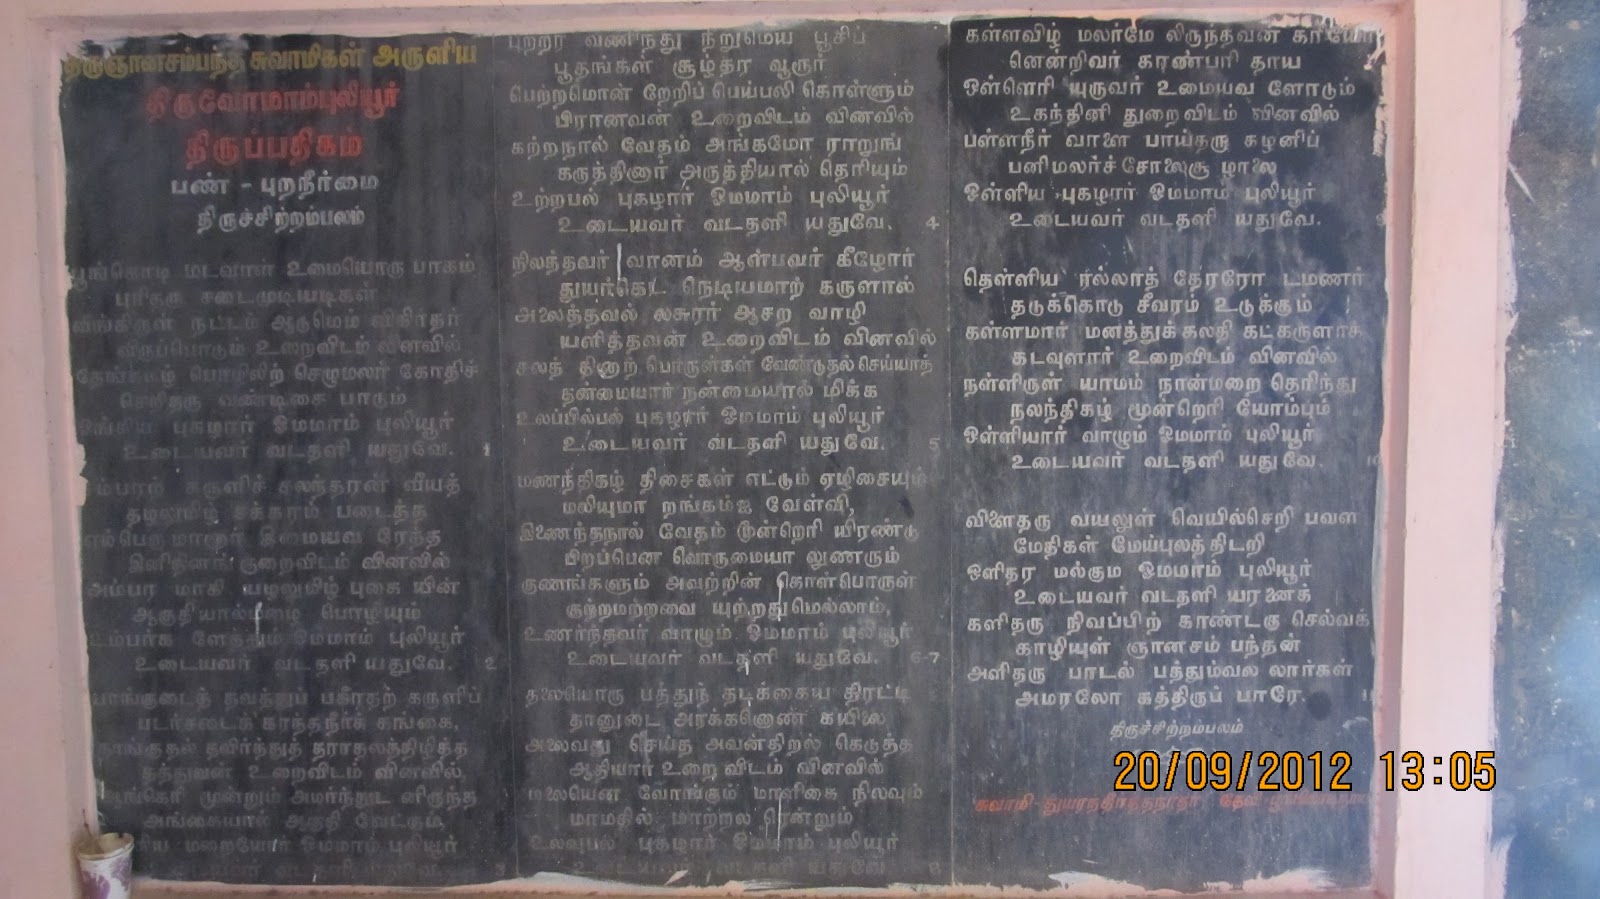 திருஞானசம்பந்த சுவாமிகள் அருளிய
திருவோமாம்புலியூர்
திருப்பதிகம்
பண் - புறநீர்மை
திருச்சிற்றம்பலம்
பூங்கொடி மடவாள் உமையொரு பாகம்
புரிதரு சடைமுடியடிகள்
வீங்கிருள் நட்டம் ஆடுமெம் விகிர்தர்
விருப்பொடும் உறைவிடம் வினவில்
தேங்கமழ் பொழிலிற் செழுமலர் கோதிச்
செறிதரு வண்டிசை பாடும்
ஓங்கிய புகழார் ஓமமாம் புலியூர்
உடையவர் வடதளி யதுவே. 1
சம்பரற் கருளிச் சலந்தரன் வீயத்
தழலுமிழ் சக்கரம் படைத்த
எம்பெருமானார் இமையவ ரேத்த
இனிதினங் குறைவிடம் வினவில்
அம்பர மாகி யழலுமிழ் புகை யின்
ஆகுதியால்மழை பொழியும்
உம்பர்க ளேத்தும் ஓமமாம் புலியூர்
உடையவர் வடதளி யதுவே. 2
பாங்குடைத் தவத்துப் பகீரதற் கருளிப்
படர்சடைக் கரந்தநீர்க் கங்கை,
தாங்குதல் தவிர்த்துத் தராதலத்திழித்த
தத்துவன் உறைவிடம் வினவில்,
ஆங்கெரி மூன்றும் அமர்ந்துட னிருந்த
அங்கையால் ஆகுதி வேட்கும்,
மறையோர் ஓமமாம் புலியூர்
3
புற்றர வணிந்து நீறுமெய் பூசிப்
பூதங்கள் சூழ்தர வூரூர்
பெற்றமொன் றேறிப் பெய்பலி கொள்ளும்
பிரானவன் உறைவிடம் வினவில்
கற்றநால் வேதம் அங்கமோ ராறுங்
கருத்தினார் அருத்தியால் தெரியும்
உற்றபல் புகழார் ஓமமாம் புலியூர்
உடையவர் வடதளி யதுவே. 4
நிலத்தவர் வானம் ஆள்பவர் கீழோர்
துயர்கெட நெடியமாற் கருளால்
அலைத்தவல் லசுரர் ஆசற வாழி
யளித்தவன் உறைவிடம் வினவில்
சலத் தினாற் பொருள்கள் வேண்டுதல் செய்யாத்
தன்மையார் நன்மையால் மிக்க
உலப்பில்பல் புகழார் ஓமமாம் புலியூர்
உடையவர் வடதளி யதுவே. 5
மணந்திகழ் திசைகள் எட்டும் ஏழிசையும்
மலியுமா றங்கம்ஐ வேள்வி,
இணைந்தநால் வேதம் மூன்றெரி யிரண்டு
பிறப்பென வொருமையா லுணரும்
குணங்களும் அவற்றின் கொள்பொருள்
குற்றமற்றவை யுற்றதுமெல்லாம்,
உணர்ந்தவர் வாழும் ஓமமாம் புலியூர்
உடையவர் வடதளி யதுவே. 6-7
தலையொரு பத்துந் தடக்கைய திரட்டி
தானுடை அரக்கனொண் கயிலை
அலைவது செய்த அவன்திறல் கெடுத்த
ஆதியார் உறை விடம் வினவில்
மலையென வோங்கும் மாளிகை நிலவும்
மாமதில் மாற்றல ரென்றும்
உலவுபல் புகழார் ஓமமாம் புலியூர்
உடையவர் வடதளி யதுவே. 8
கள்ளவிழ் மலர்மே லிருந்தவன் கரியோ
னென்றிவர் காண்பரி தாய
ஒள்ளெரி யுருவர் உமையவ ளோடும்
உகந்தினி துறைவிடம் வினவில்
பள்ளநீர் வாளை பாய்தரு கழனிப்
பனிமலர்ச் சோலைசூ ழாலை
ஒள்ளிய புகழார் ஓமமாம் புலியூர்
உடையவர் வடதளி யதுவே. 9
தெள்ளிய ரல்லாத் தேரரோ டமணர்
தடுக்கொடு சீவரம் உடுக்கும்
கள்ளமார் மனத்துக்கலதி கட்கருளாக்
கடவுளார் உறைவிடம் வினவில்
நள்ளிருள் யாமம் நான்மறை தெரிந்து
நலந்திகழ் மூன்றெரி யோம்பும்
ஒள்ளியார் வாழும் ஓமமாம் புலியூர்
உடையவர் வடதளி யதுவே. 10
விளைதரு வயலுள் வெயில்செறி பவள
மேதிகள் மேய்புலத்திடறி
ஒளிதர மல்கும ஓமமாம் புலியூர்
உடையவர் வடதளி யரனைக்
களிதரு நிவப்பிற் காண்டகு செல்வக்
காழியுள் ஞானசம் பந்தன்
அளிதரு பாடல் பத்தும்வல லார்கள்
அமரலோ கத்திருப் பாரே.
திருச்சிற்றம்பலம்
20/09/2012 13:05
சுவாமி -